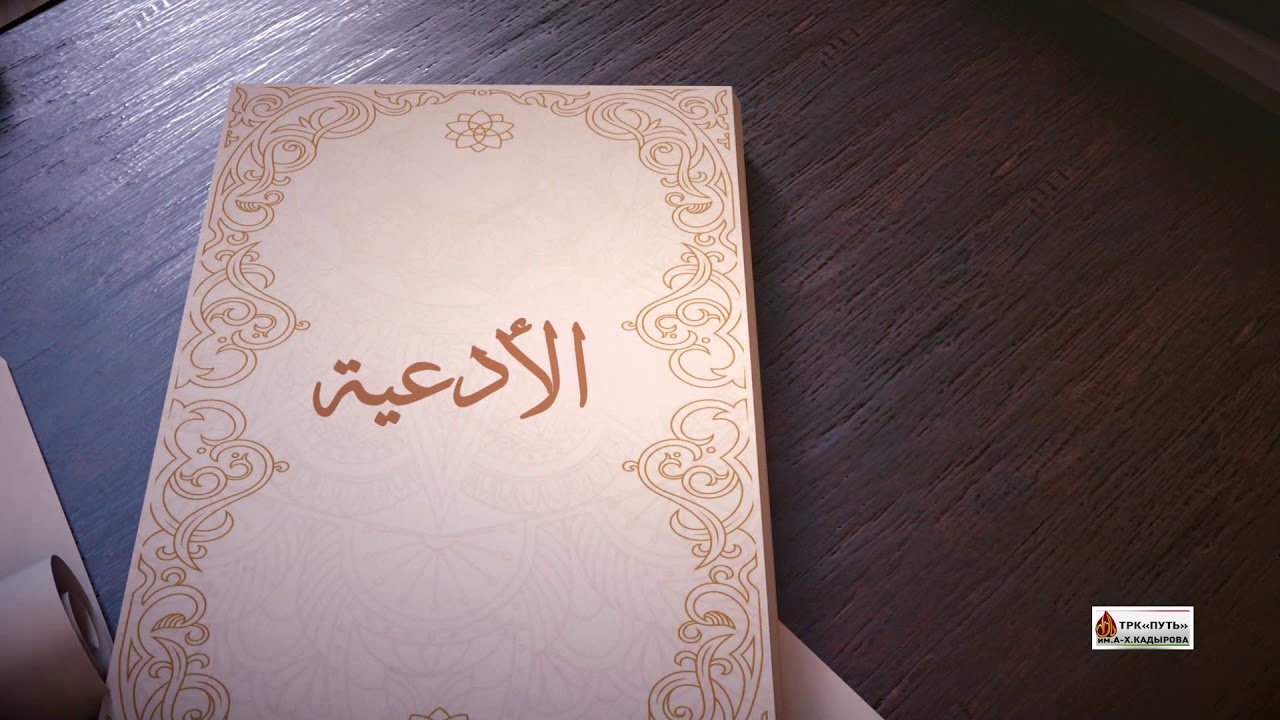 الأدعية
ТРК«ПУТЬ»
им.А-Х.КАДЫРОВА